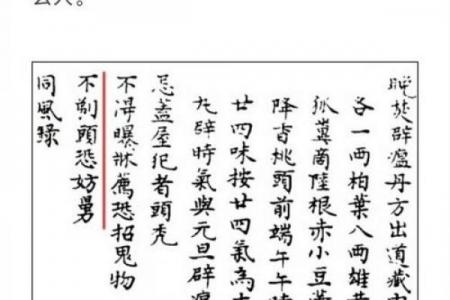 晚焚辟瘟丹方出道藏
各一两柏葉八两雄黄
商陸根赤小豆
降皆桃頭前端午午
廿四味按廿四氣為
九辟時氣與元旦辟瘟
忌蓋屋犯者頭禿
不得曝牀薦恐招鬼物
不剃頭恐妨舅
同風録